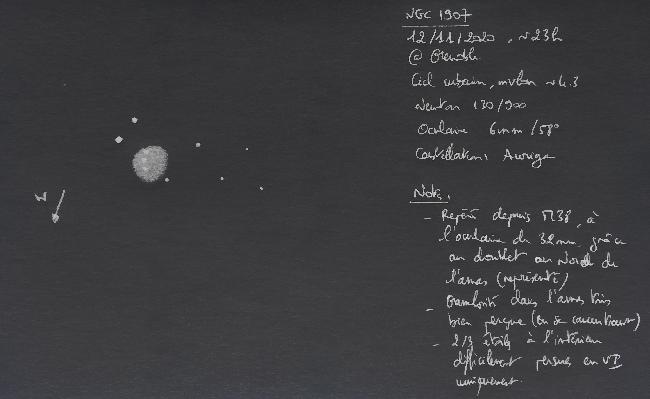 NGC 1907
12/11/2020, ~23h
@ Grenoble
Ciel urbain, mvlon ~4.3
Newton 130/900
Oculaire 6mm/58°
Constellation: Auriga
N
Notes.
- Repéré depuis M38, à
l'oculaire de 32mm, grâce
au doublet au Nord de
l'amas (représenté)
- Granulosité dans l'amas très
bien perçue (en se concentrant)
- 2/3 étoiles à l'intérieur
difficilement perçues en VI
uniquement.